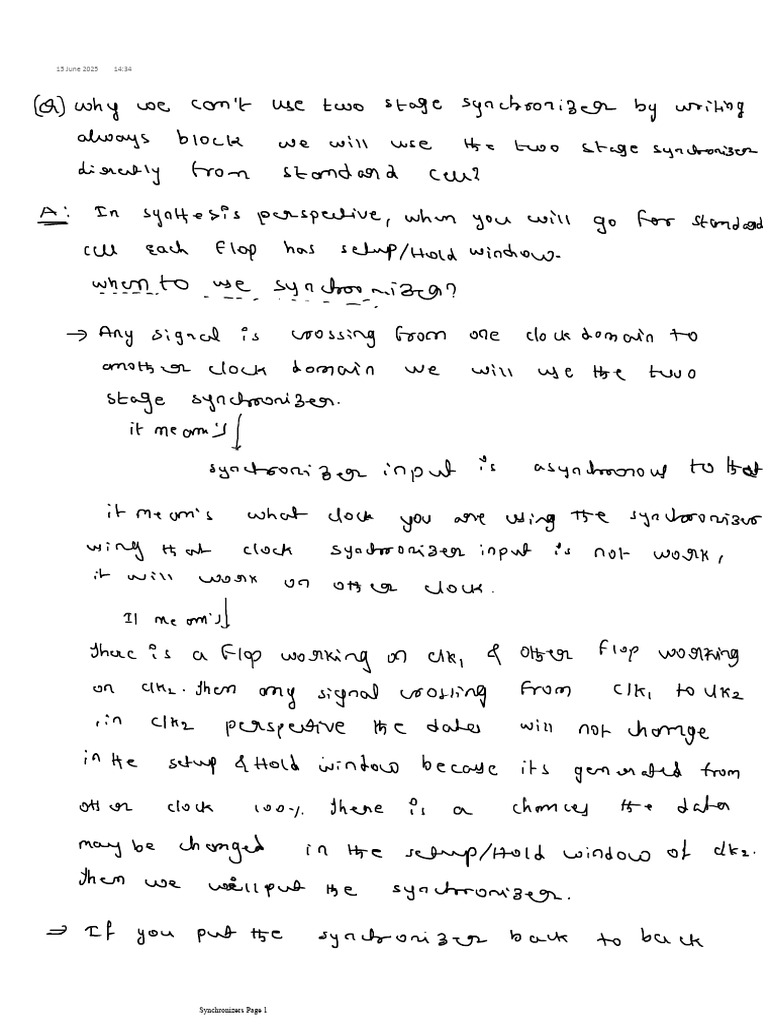 15 June 2025 14:34
(Q) why we can't use two stage synchronizer by writing
always block we will use the two stage synchronizer
directly from standard cell?
A: In synthesis perspective, when you will go for standard
cell each flop has setup/Hold window.
when to use synchronizer?
→ Any signal is crossing from one clock domain to
another clock domain we will use the two
stage synchronizer.
it mean's ↓
synchronizer input is asynchronous to that
it mean's what clock you are using the synchronizer
using that clock synchronizer input is not work,
it will work on other clock.
It mean's ↓
there is a flop working on clk1 & other flop working
on clk2. then any signal crossing from clk1 to clk2
, in clk2 perspective the data will not change
in the setup & Hold window because its generated from
other clock 100% there is a chances the data
may be changed in the setup/Hold window of clk2.
then we will put the synchronizer.
⇒ If you put the synchronizer back to back
Synchronizers Page 1